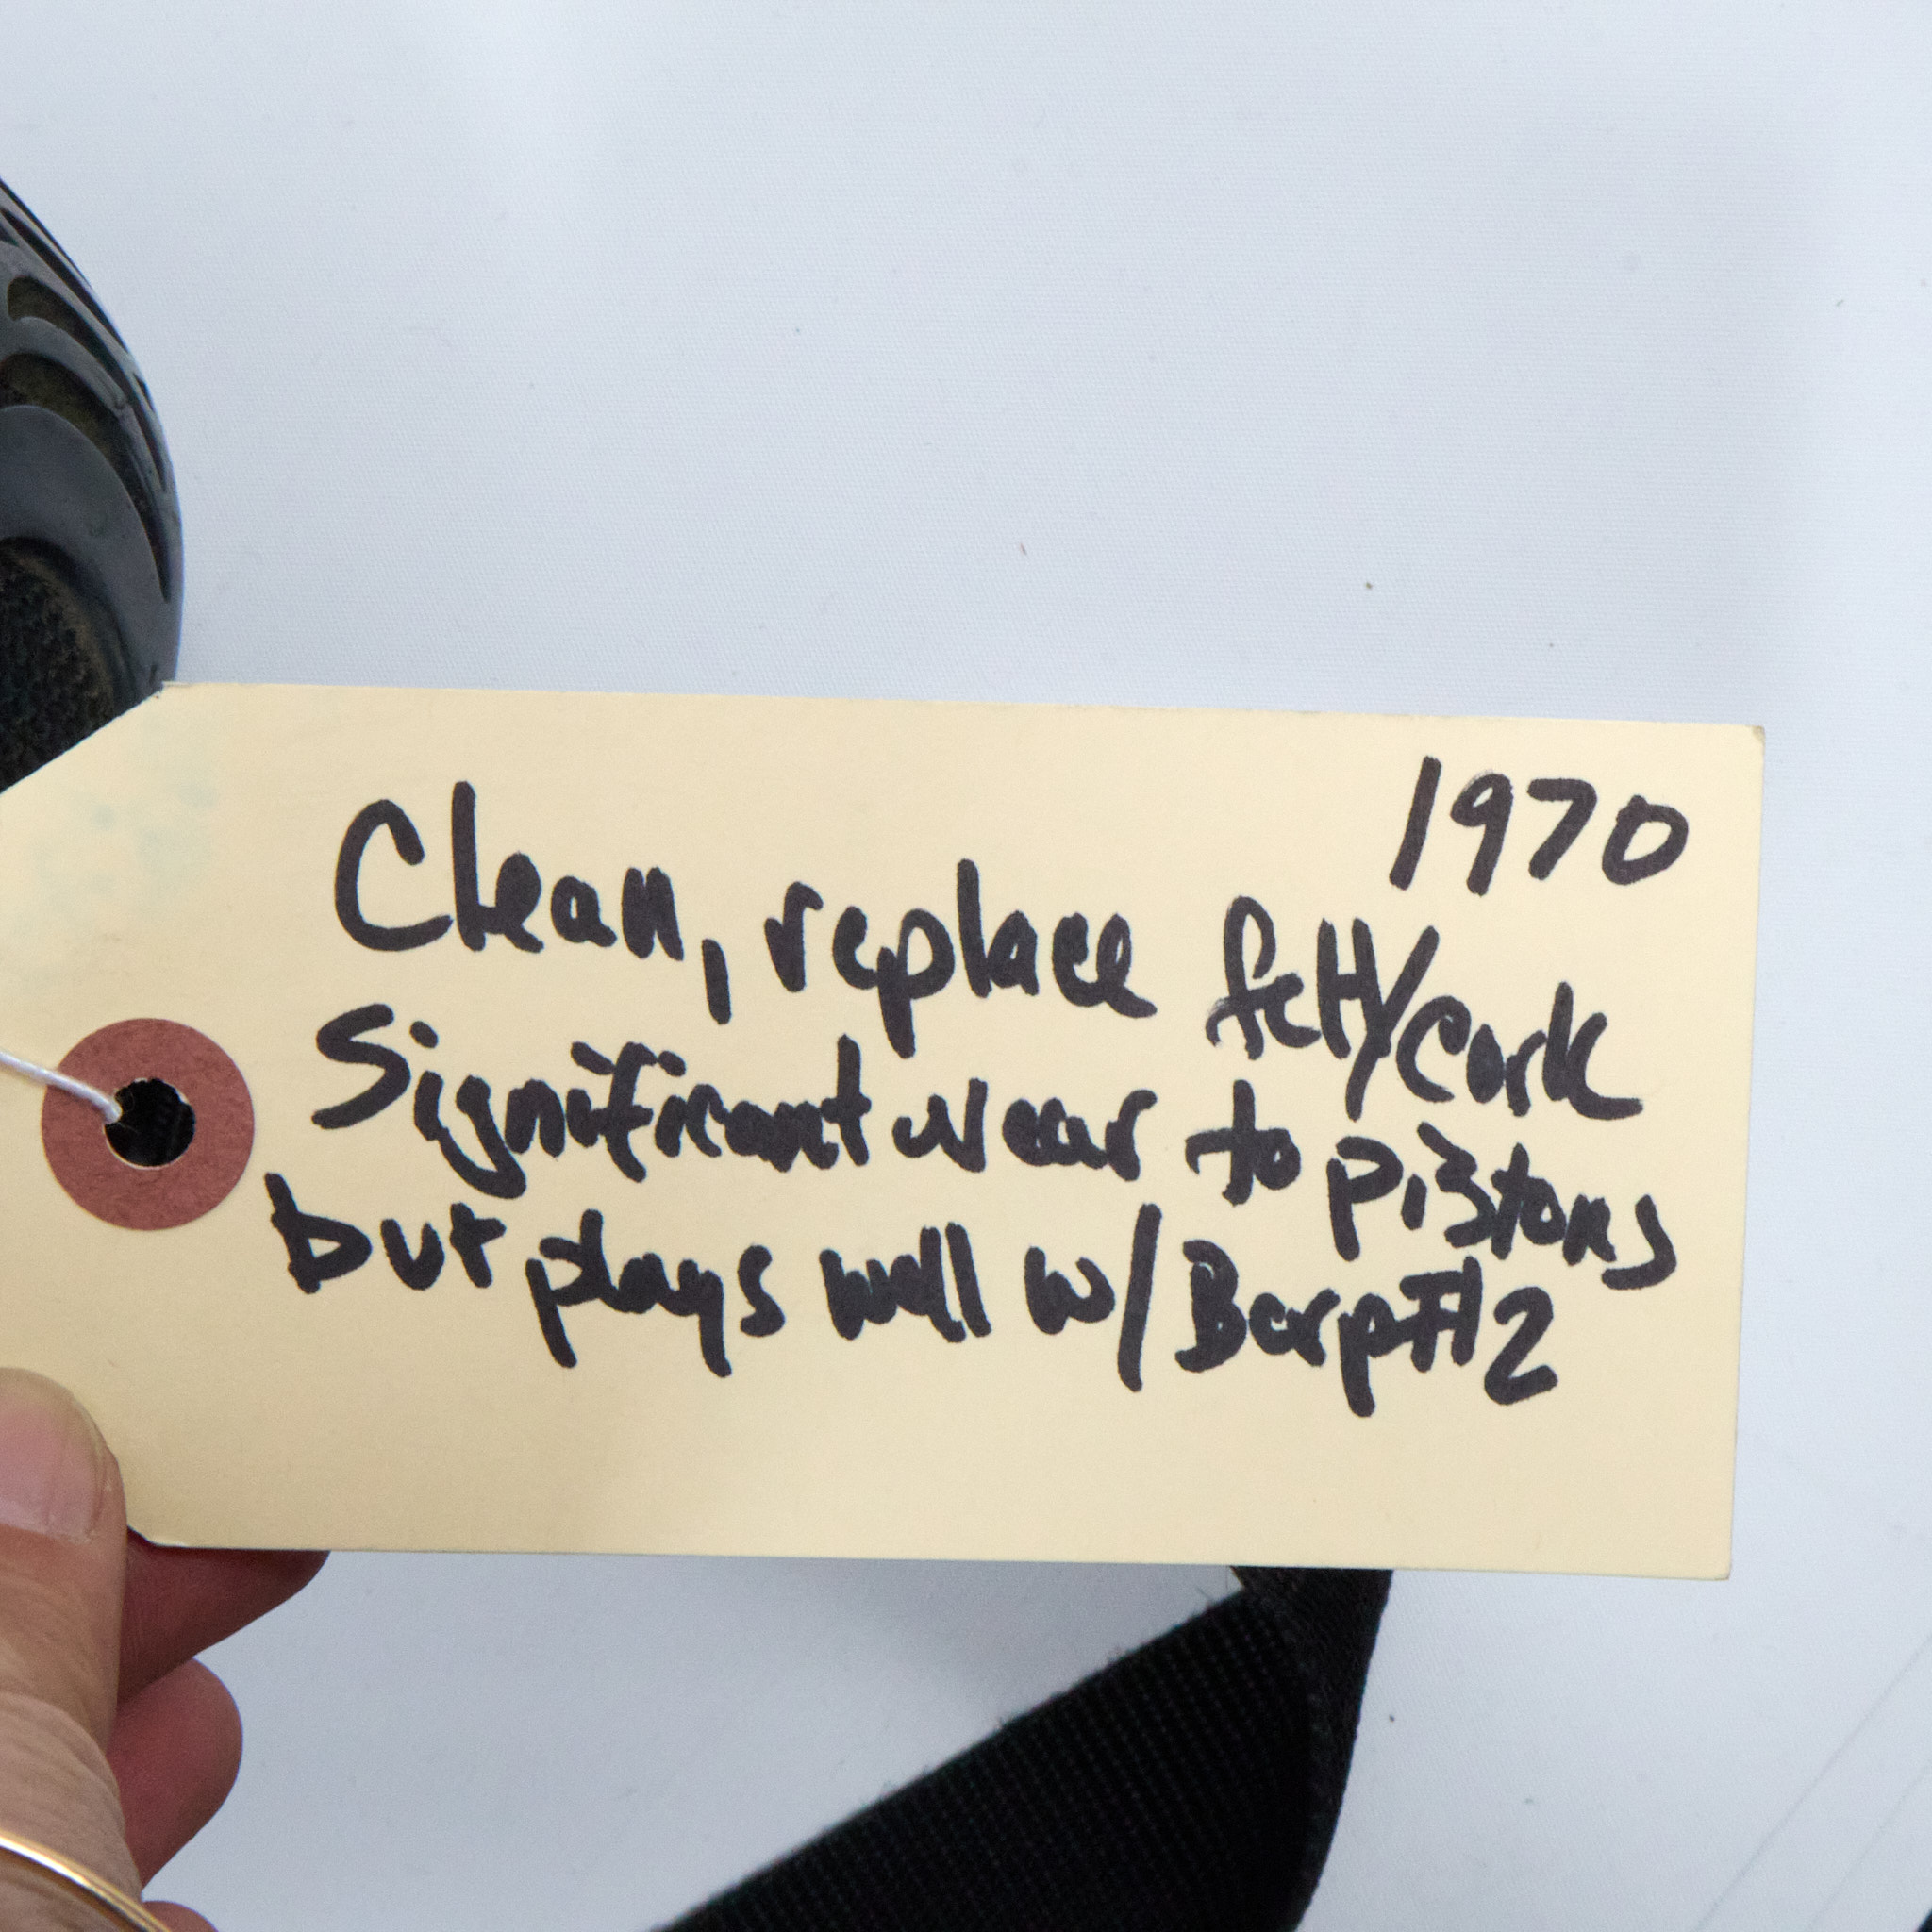 1970
Clean, replace felt/cork
Significant wear to pistons
but plays well w/